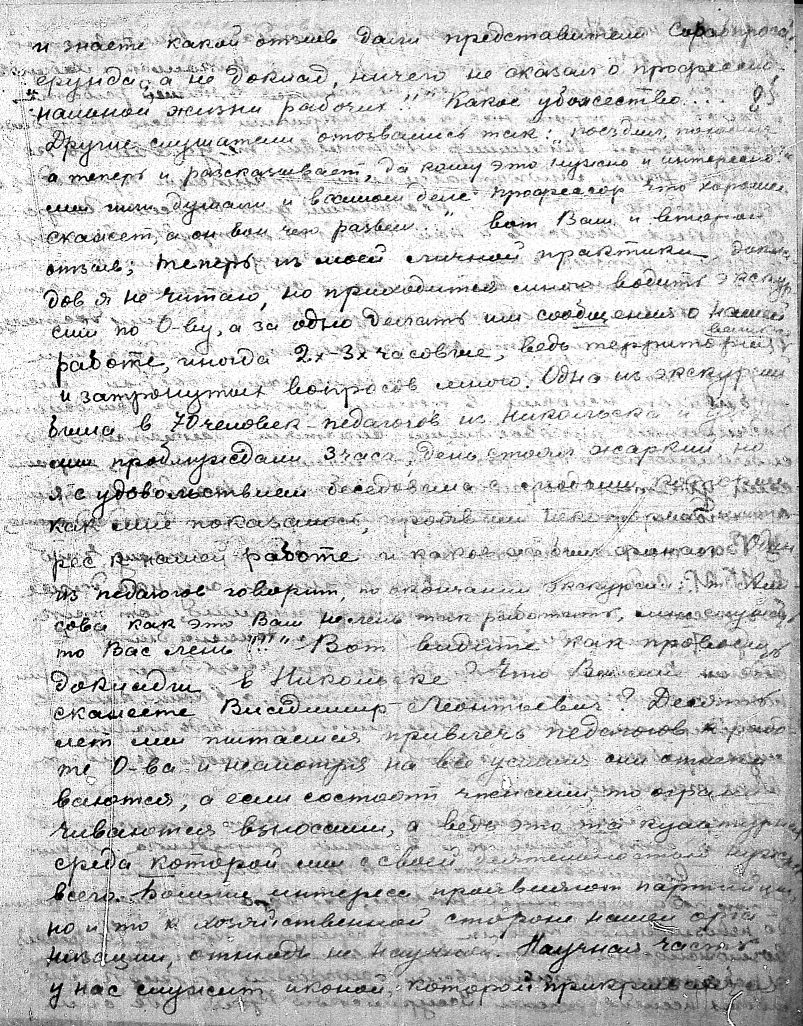 и знаете какой отзыв дали представители Соробпроса:
ерунда, а не доклад, ничего не сказал о професcио-
нальной жизни рабочих!!" Какое убожество...
Другие слушатели отозвались так: "поездил,
а теперь и рассказывает, да кому это нужно и интересно."
мы думали и в самом деле профессор что хорошее
скажет, а он вон чего развел..." вот Вам и второй
отзыв; теперь из моей личной практики, докла-
дов я не читаю, но приходится много водить экскур-
сий по О-ву, а за одно делать им сообщения о нашей
работе, иногда 2х-3х часовые, ведь территория велика
и затронутых вопросов много. Одна из экскурсий
была в 70 человек - педагогов из Никольска и
мы проблуждали 3 часа, день стоял жаркий но
я с удовольствием беседовала с людьми, которые
как мне показалось, проявили
рес к нашей работе и каково
из педагогов говорит, по окончании экскурсии:
сова как это Вам не лень так работать,
то Вас лень!!!" Вот видите как
доклады в Никольске? Что Вы мне на
скажете Владимир Леонтьевич? Десять
лет мы пытаемся привлечь педагогов к рабо-
те О-ва и несмотря на все усилия они отмахи-
ваются, а если состоят членами, то ограни-
чиваются взносами, а ведь это та культурная
среда которой мы с своей деятельностью нужнее
всего. Больше интереса проявляют партийцы,
но и то к хозяйственной стороне нашей орга-
низации, отнюдь не научной. Научная часть
у нас служит иконой, которой прикрывается